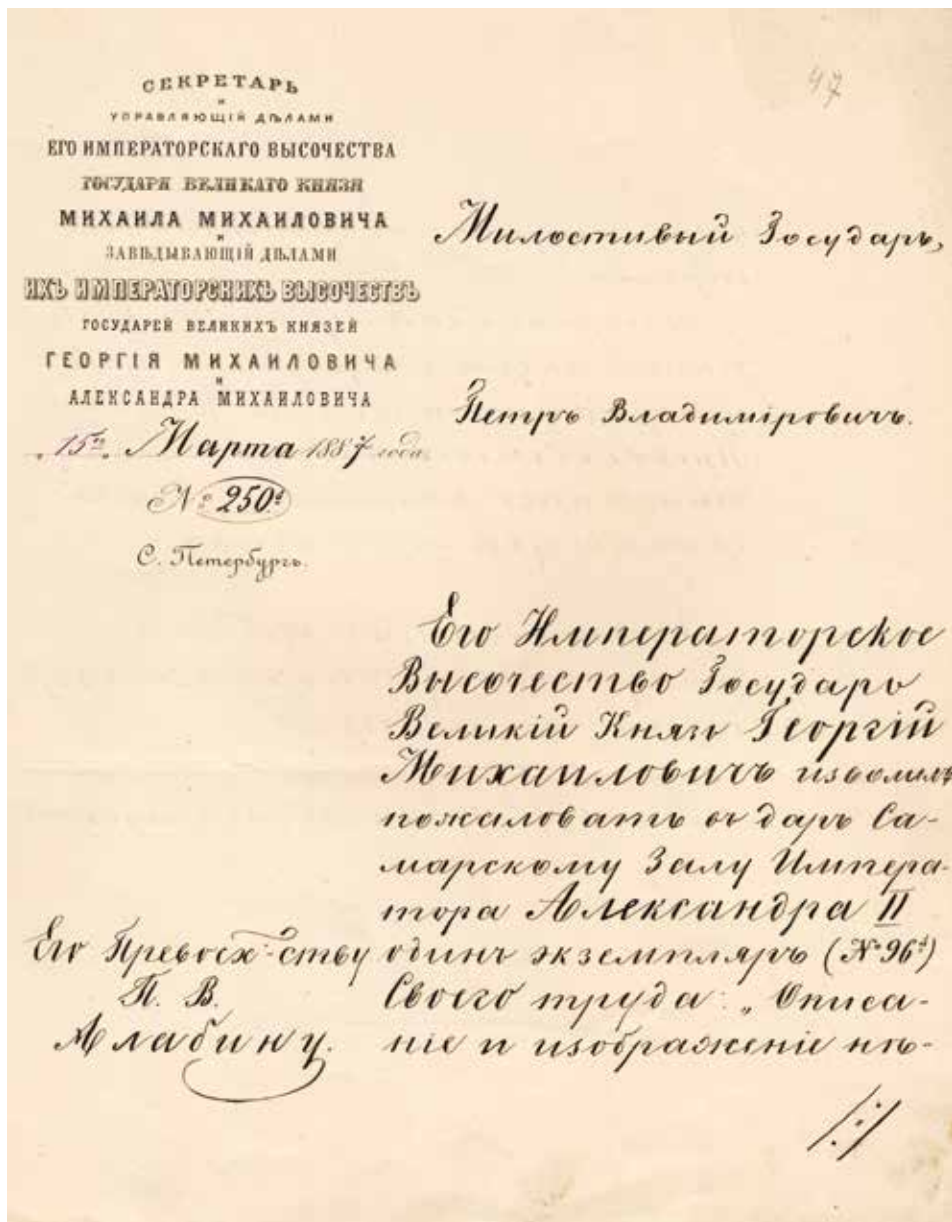 47
СЕКРЕТАРЬ
и
УПРАВЛЯЮЩІЙ ДѢЛАМИ
ЕГО ИМПЕРАТОРСКАГО ВЫСОЧЕСТВА
ГОСУДАРЯ ВЕЛИКАГО КНЯЗЯ
МИХАИЛА МИХАИЛОВИЧА
и
ЗАВѢДЫВАЮЩІЙ ДѢЛАМИ
ИХЪ ИМПЕРАТОРСКИХЪ ВЫСОЧЕСТВЪ
ГОСУДАРЕЙ ВЕЛИКИХЪ КНЯЗЕЙ
ГЕОРГІЯ МИХАИЛОВИЧА
и
АЛЕКСАНДРА МИХАИЛОВИЧА
„15го“ Марта 1887 года
№ 250й
С. Петербургъ.
Милостивый Государь,
Петръ Владиміровичъ.
Его Императорское
Высочество Государь
Великій Князь Георгій
Михаиловичъ изволилъ
пожаловать въ даръ Са-
марскому Залу Импера-
тора Александра II
одинъ экземпляръ (№ 96й)
Своего труда: „Описа-
ніе и изображеніе нѣ-
Его Превосх-ству
П. В.
Алабину.